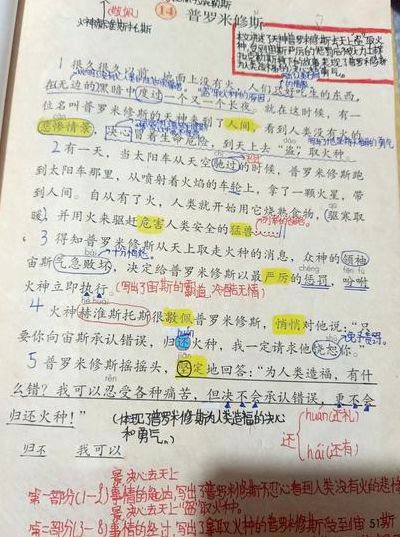 (敬佩)
火神赫淮斯托斯
14 普罗米修斯
本文讲述了天神普罗米修斯去天上"盗"取火种
1 很久很久以前,地面上没有火,人们只好吃生的东西,
在无边的黑暗中度过一个又一个长夜。就在这时候,有一
位名叫普罗米修斯的天神来到了人间,看到人类没有火的
悲惨情景,决心冒着生命危险,到天上去"盗"取火种。
2 有一天,当太阳车从天空驰过的时候,普罗米修斯跑
到太阳车那里,从喷射着火焰的车轮上,拿了一颗火星,带
到人间。自从有了火,人类就开始用它烧熟食物,驱寒取
暖,并用火来驱赶危害人类安全的猛兽……
3 得知普罗米修斯从天上取走火种的消息,众神的领袖
十分
宙斯气急败坏,决定给普罗米修斯以最严厉的惩罚,吩咐
chéng fēn fù
火神立即执行。(写出了宙斯的霸道、冷酷无情)
4 火神赫淮斯托斯很敬佩普罗米修斯,悄悄对他说:"只
要你向宙斯承认错误,归还火种,我一定请求他饶恕你。"
5 普罗米修斯摇摇头,坚定地回答:"为人类造福,有什
么错?我可以忍受各种痛苦,但决不会承认错误,更不会
归还火种!" (体现了普罗米修斯为人类造福的决心
和勇气。)
还 huán(还礼)
hái(还有)
归还 我可以
决心去天上
第一部分(1-2)事情的起因,写出了普罗米修斯不忍心看到人类没有火的悲惨
决心去天上"盗"取火种。
第二部分(3-8)事情的经过,写出了拿取火种的普罗米修斯受到宙斯
51